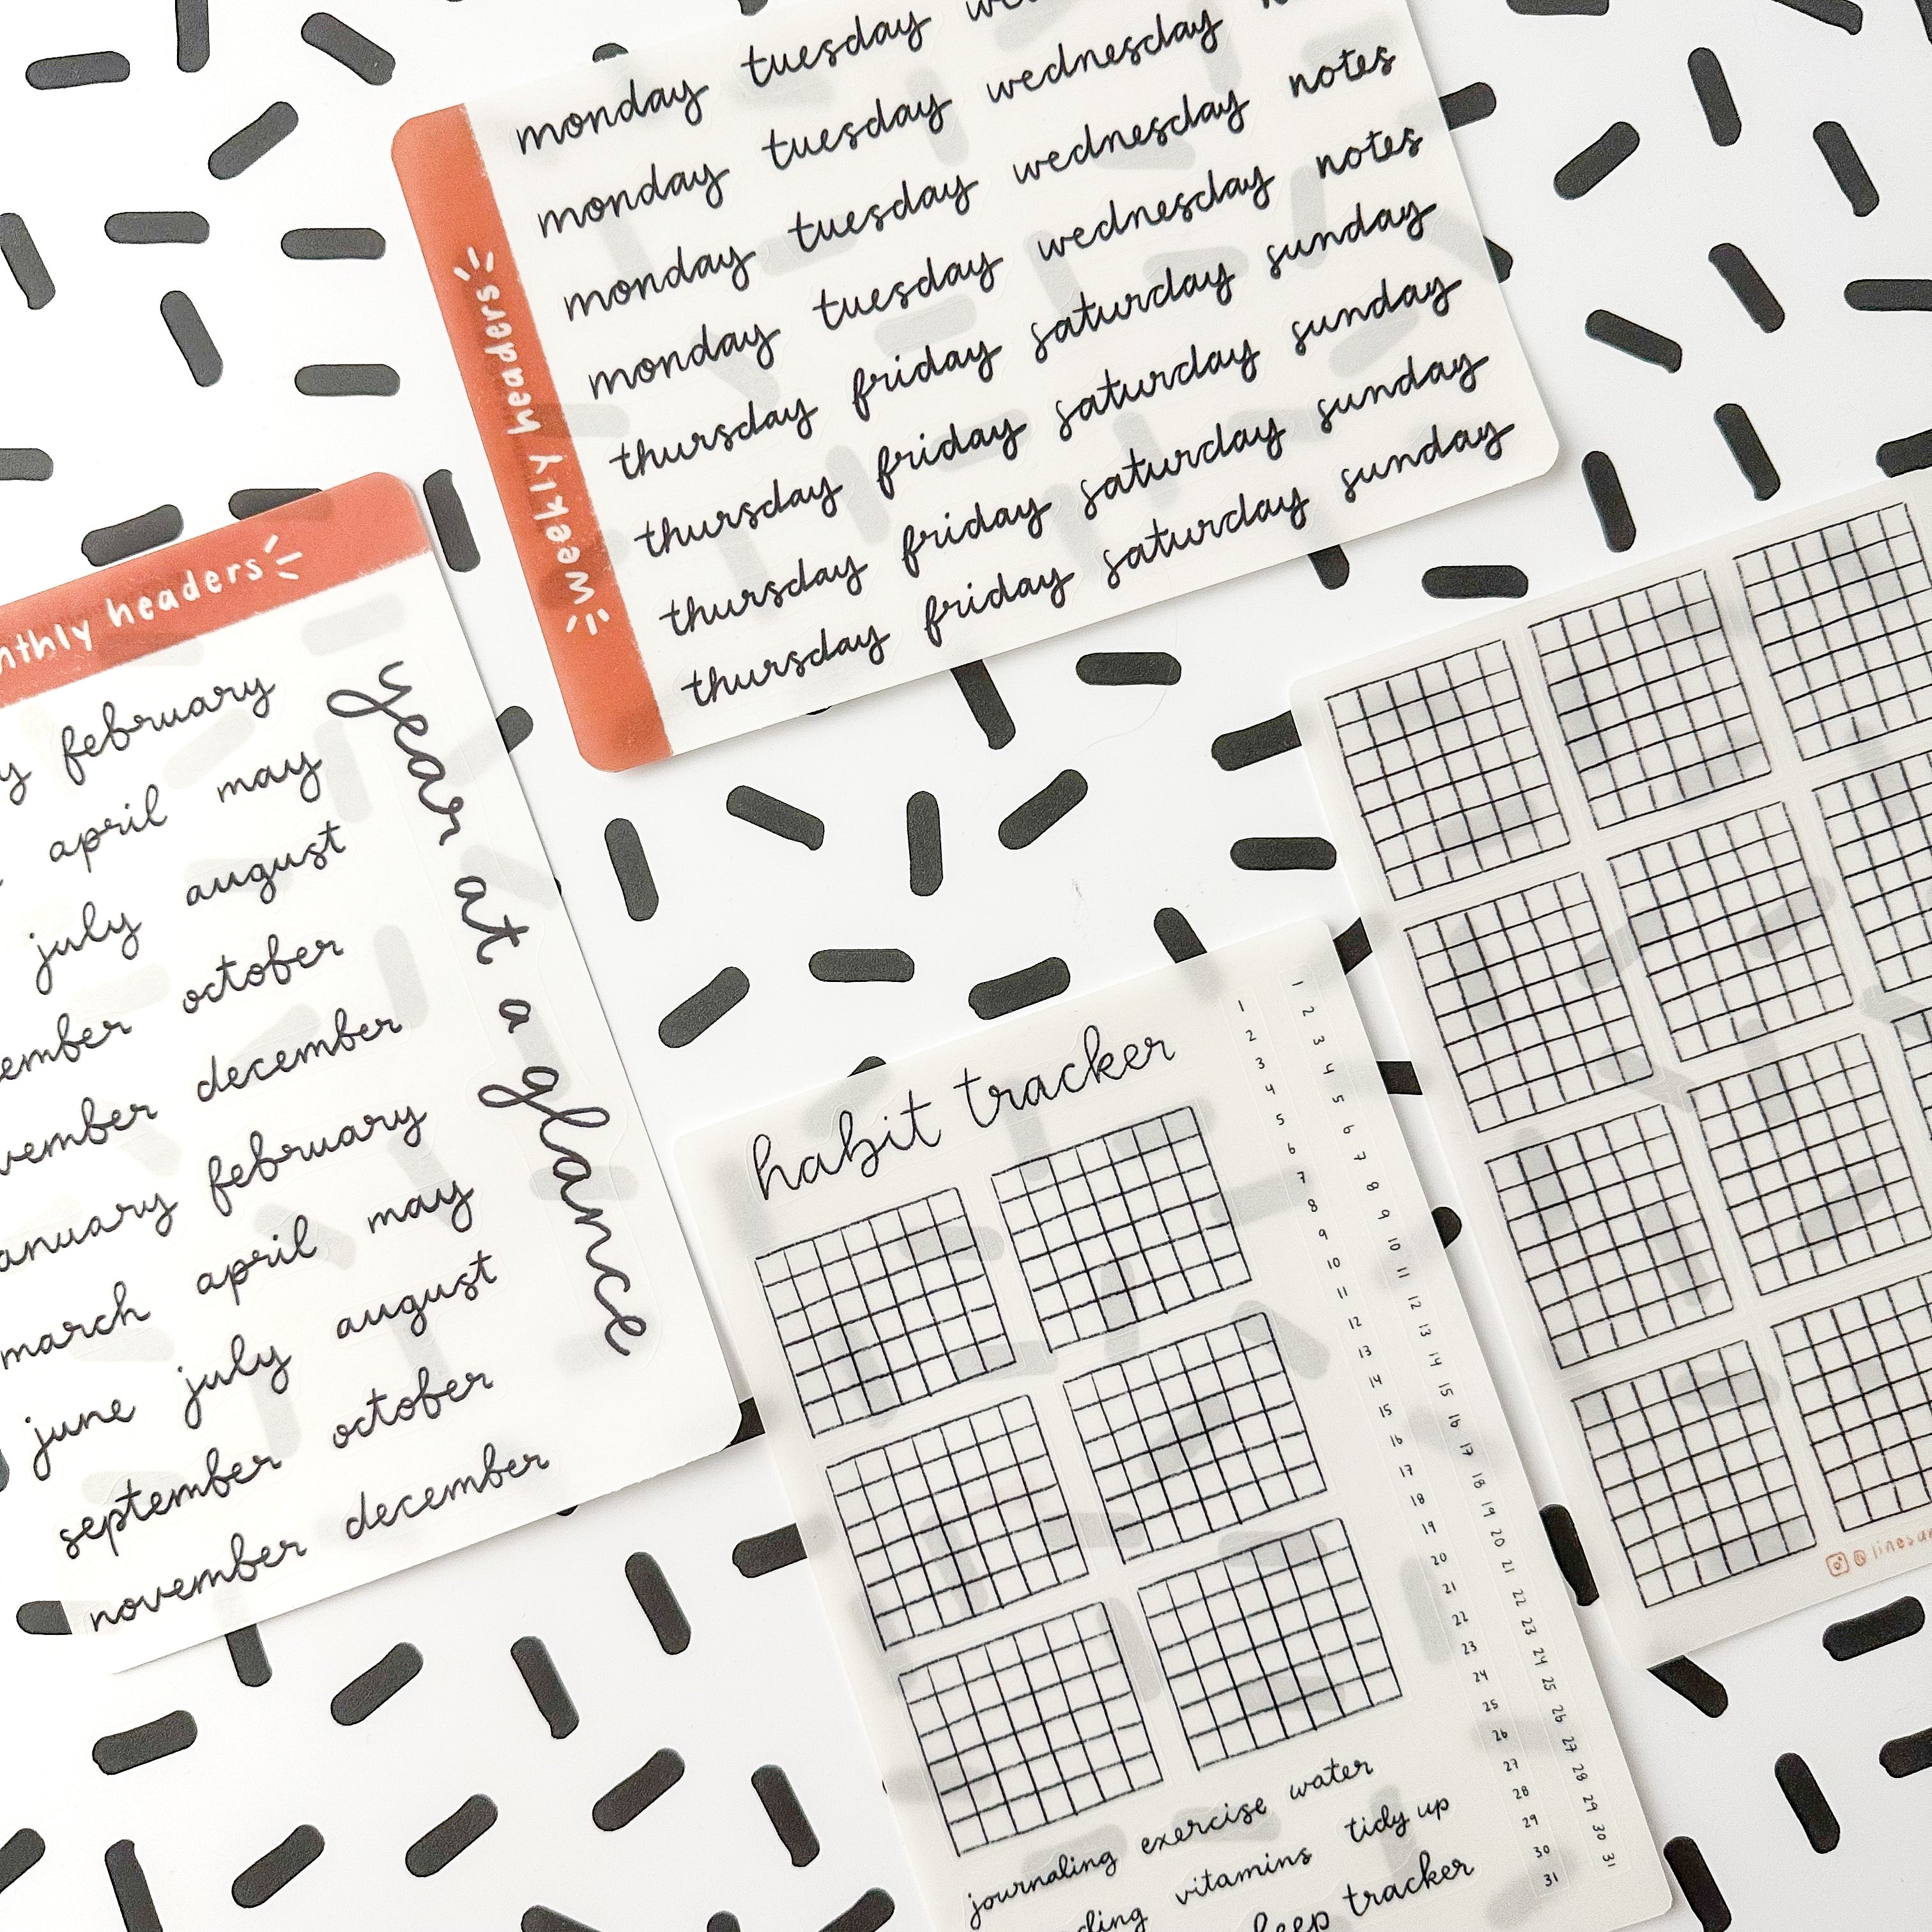 monday tuesday
monday tuesday wednesday
monday tuesday wednesday notes
monday tuesday wednesday notes
thursday friday saturday sunday
thursday friday saturday sunday
thursday friday saturday sunday
thursday friday saturday sunday
weekly headers
headers
february
april may
july august
october
december
february
march april may
june july august
september october
november december
year at a glance
habit tracker
1 2 3 4 5 6 7 8 9 10 11 12 13 14 15 16 17 18 19 20 21 22 23 24 25 26 27 28 29 30 31
1 2 3 4 5 6 7 8 9 10 11 12 13 14 15 16 17 18 19 20 21 22 23 24 25 26 27 28 29 30 31
journaling exercise water
vitamins tidy up
tracker